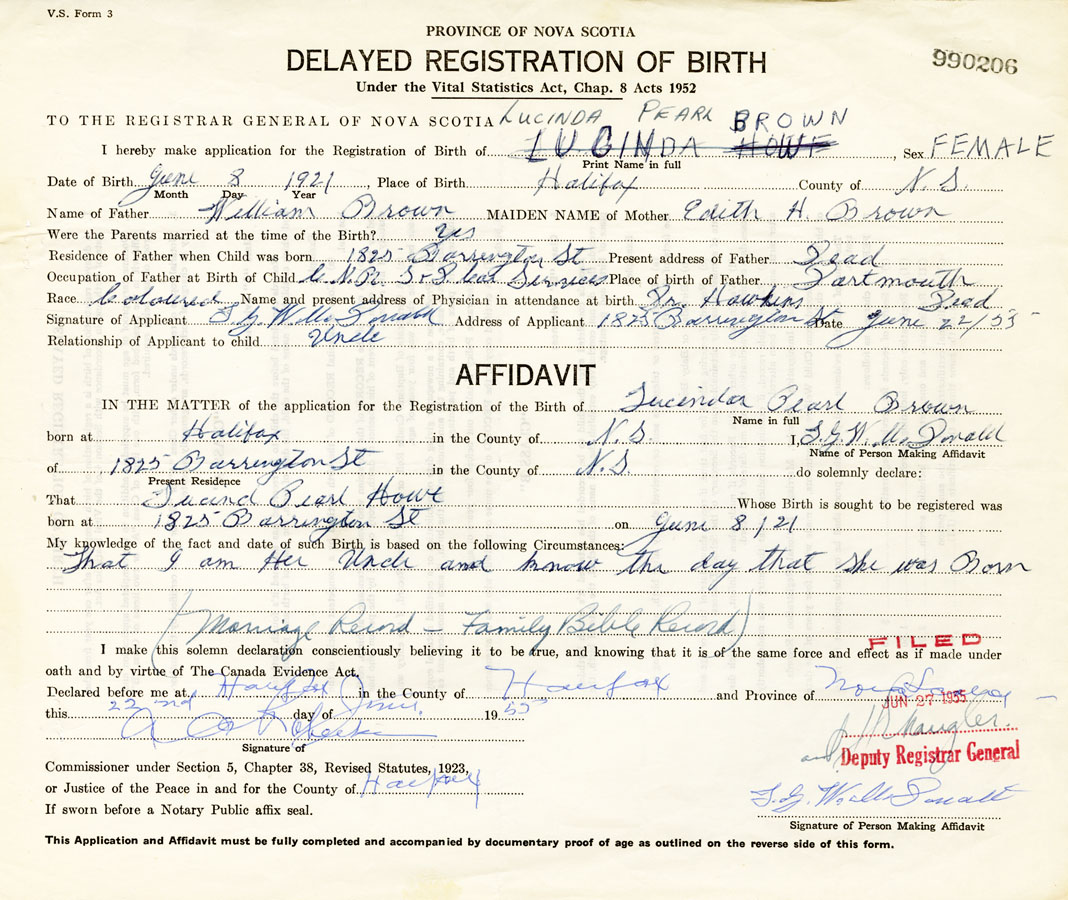 V.S. Form 3
PROVINCE OF NOVA SCOTIA
DELAYED REGISTRATION OF BIRTH
990206
Under the Vital Statistics Act, Chap. 8 Acts 1952
LUCINDA PEARL BROWN
TO THE REGISTRAR GENERAL OF NOVA SCOTIA
I hereby make application for the Registration of Birth of LUCINDA HOWE, Sex FEMALE
Print Name in full
Date of Birth June 8 1921, Place of Birth Halifax County of N.S.
Month Day Year
Name of Father William Brown MAIDEN NAME of Mother Edith H. Brown
Were the Parents married at the time of the Birth? Yes
Residence of Father when Child was born 1825 Barrington St Present address of Father Dead
Occupation of Father at Birth of Child C.N.R. Services Place of birth of Father Dartmouth
Race Coloured Name and present address of Physician in attendance at birth Dr. Hawkins Dead
Signature of Applicant Address of Applicant 1825 Barrington St Date June 22/55
Relationship of Applicant to child Uncle
AFFIDAVIT
IN THE MATTER of the application for the Registration of the Birth of Lucinda Pearl Brown
Name in full
born at Halifax in the County of N.S. I,
Name of Person Making Affidavit
of 1825 Barrington St in the County of N.S. do solemnly declare:
Present Residence
That Pearl Howe Whose Birth is sought to be registered was
born at 1825 Barrington St on June 8/21
My knowledge of the fact and date of such Birth is based on the following Circumstances:
That I am Her Uncle and know the day that she was Born
(Marriage Record - Family Bible Record)
FILED
I make this solemn declaration conscientiously believing it to be true, and knowing that it is of the same force and effect as if made under
oath and by virtue of The Canada Evidence Act.
Declared before me at Halifax in the County of Halifax and Province of Nova Scotia
JUN 27 1955
this 22nd day of June 1955
Signature of
Deputy Registrar General
Commissioner under Section 5, Chapter 38, Revised Statutes, 1923,
or Justice of the Peace in and for the County of Halifax
If sworn before a Notary Public affix seal.
Signature of Person Making Affidavit
This Application and Affidavit must be fully completed and accompanied by documentary proof of age as outlined on the reverse side of this form.